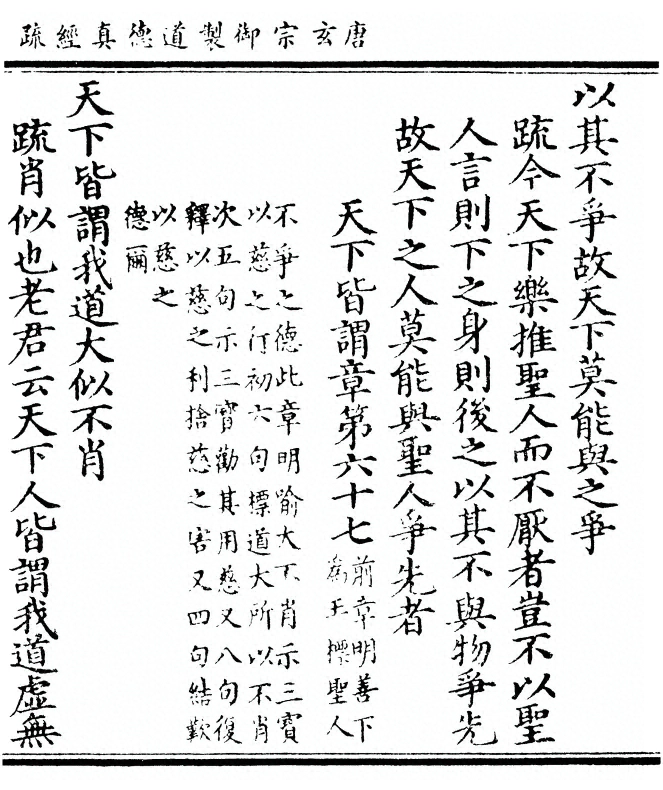 唐玄宗御製道德真經疏
以其不爭故天下莫能與之爭
疏今天下樂推聖人而不厭者豈不以聖
人言則下之身則後之以其不與物爭先
故天下之人莫能與聖人爭先者
天下皆謂章第六十七前章明善下
為王標聖人
不爭之德此章明喻大不肖示三寶
以慈之行初六句標道大所以不肖
次五句示三寶勸其用慈又八句復
釋以慈之利捨慈之害又四句結歎
以慈之
德爾
天下皆謂我道大似不肖
疏肖似也老君云天下人皆謂我道虛無